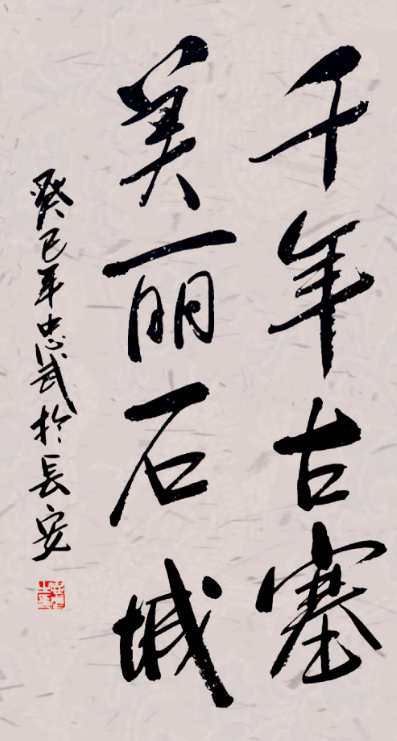 千年古塞
美丽石城
癸巳年忠武於长安